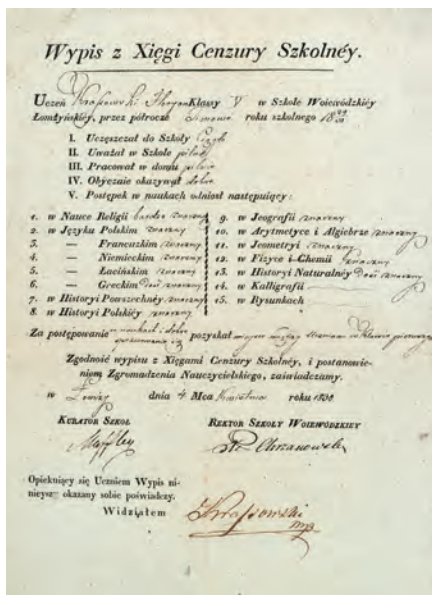 Wypis z Xięgi Cenzury Szkolnéy.
Uczeń Krassowski Klassy V w Szkole Woiewódzkiéy
Łomżyńskiéy, przez półrocze zimowe roku szkolnego 18 29/30
I. Uczęszczał do Szkoły
II. Uważał w Szkole pilnie
III. Pracował w domu pilnie
IV. Obyczaie okazywał dobre
V. Postępek w naukach odniosł następuiący:
1. w Nauce Religii bardzo znaczny
2. w Języku Polskim znaczny
3. — Francuzkim znaczny
4. — Niemieckim znaczny
5. — Łacińskim znaczny
6. — Greckim dość znaczny
7. w Historyi Powszechnéy znaczny
8. w Historyi Polskiéy znaczny
9. w Jeografii znaczny
10. w Arytmetyce i Algiebrze znaczny
11. w Jeometryi znaczny
12. w Fizyce i Chemii znaczny
13. w Historyi Naturalnéy dość znaczny
14. w Kalligrafii
15. w Rysunkach
Za postępowanie w naukach i dobre pozyskał miejsce między Uczniami w Klassie
Zgodność wypisu z Xięgami Cenzury Szkolnéy, i postanowie-
niem Zgromadzenia Nauczycielskiego, zaświadczamy.
w Łomży dnia 4 Mca Kwietnia roku 1830
Kurator Szkoł
Rektor Szkoły Woiewodzkiey
Chrzanowski
Opiekuiący się Uczniem Wypis ni-
nieyszy okazany sobie poświadczy.
Widziałem
Krassowski
mp